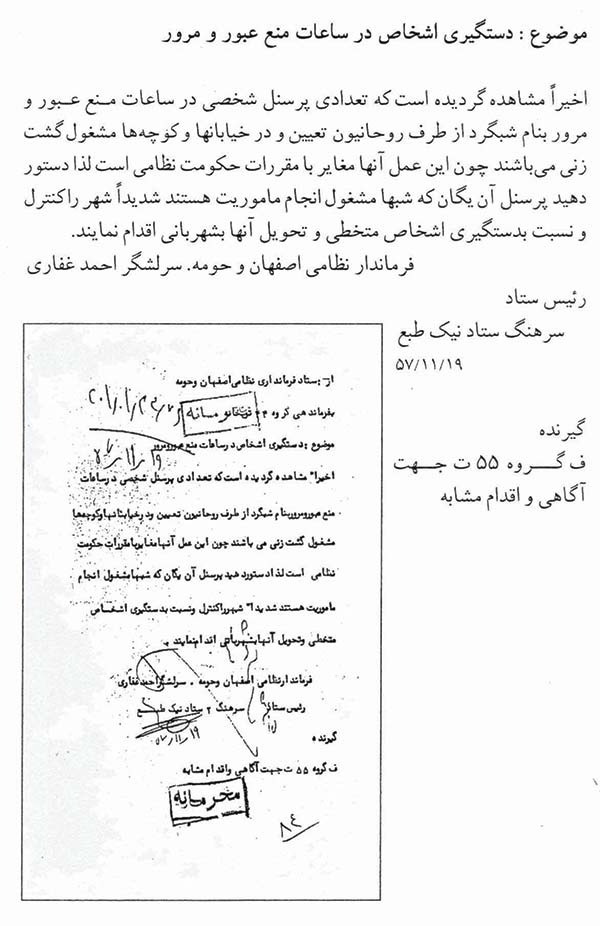 موضوع : دستگیری اشخاص در ساعات منع عبور و مرور
اخیراً مشاهده گردیده است که تعدادی پرسنل شخصی در ساعات منع عبور و
مرور بنام شبگرد از طرف روحانیون تعیین و در خیابانها و کوچه‌ها مشغول گشت
زنی می‌باشند چون این عمل آنها مغایر با مقررات حکومت نظامی است لذا دستور
دهید پرسنل آن یگان که شبها مشغول انجام ماموریت هستند شدیداً شهر را کنترل
و نسبت بدستگیری اشخاص متخطی و تحویل آنها بشهربانی اقدام نمایند.
فرماندار نظامی اصفهان و حومه. سرلشگر احمد غفاری
رئیس ستاد
سرهنگ ستاد نیک طبع
۵۷/۱۱/۱۹
گیرنده
ف گروه ۵۵ ت جهت
آگاهی و اقدام مشابه
از : ستاد فرمانداری نظامی اصفهان وحومه
بفرماندهی گروه ۴۴
موضوع : دستگیری اشخاص در ساعات منع عبورومرور
اخیرا" مشاهده گردیده است که تعدادی پرسنل شخصی درساعات
منع عبورومرور بنام شبگرد از طرف روحانیون تعیین ودر خیابانها وکوچه‌ها
مشغول گشت زنی می باشند چون این عمل آنها مغایر با مقررات حکومت
نظامی است لذا دستور دهید پرسنل آن یگان که شبها مشغول انجام
ماموریت هستند شدیدا" شهر را کنترل ونسبت بدستگیری اشخاص
متخطی وتحویل آنها بشهربانی اقدام نمایند .
فرماندار نظامی اصفهان وحومه . سرلشگر احمد غفاری
رئیس ستاد سرهنگ ۲ ستاد نیک طبع
۵۷/۱۱/۱۹
گیرنده
ف گروه ۵۵ ت جهت آگاهی واقدام مشابه
محرمانه
۸۴